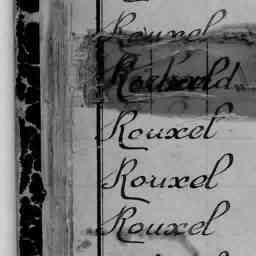 Rouxel
Rouxel
Rouxel
Rouxel